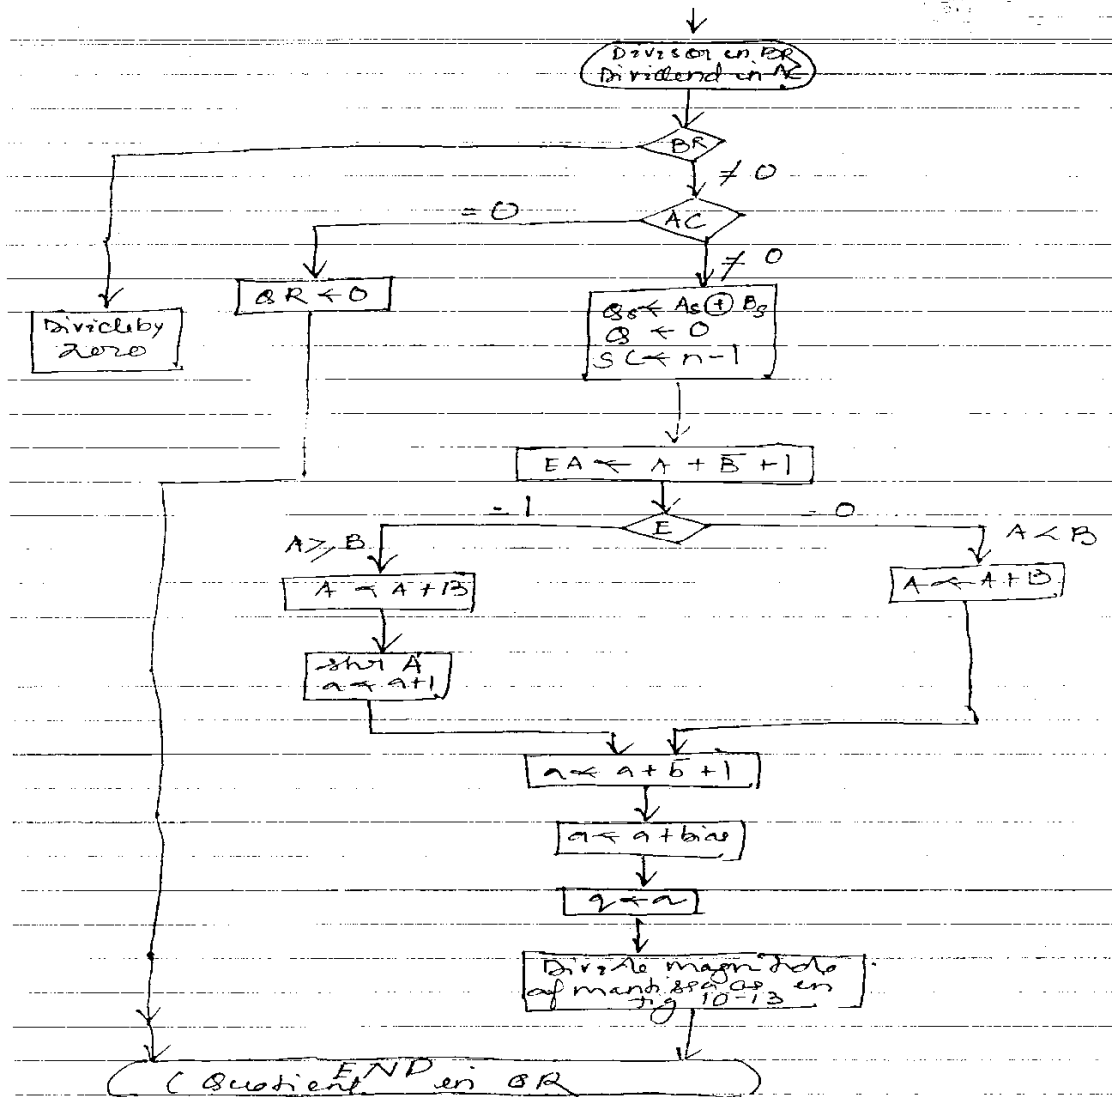 Divisor in BR
Dividend in AC
BR
≠ 0
= 0
AC
≠ 0
QR ← 0
Divide by
zero
Qs ← As ⊕ Bs
Q ← 0
SC ← n-1
EA ← A + B̅ + 1
= 1
E
= 0
A ≥ B
A < B
A ← A + B
A ← A + B
shr A
a ← a+1
a ← a + b̅ + 1
a ← a + bias
q ← a
Divide magnitude
of mantissa as in
fig 10-13
END
(Quotient in QR